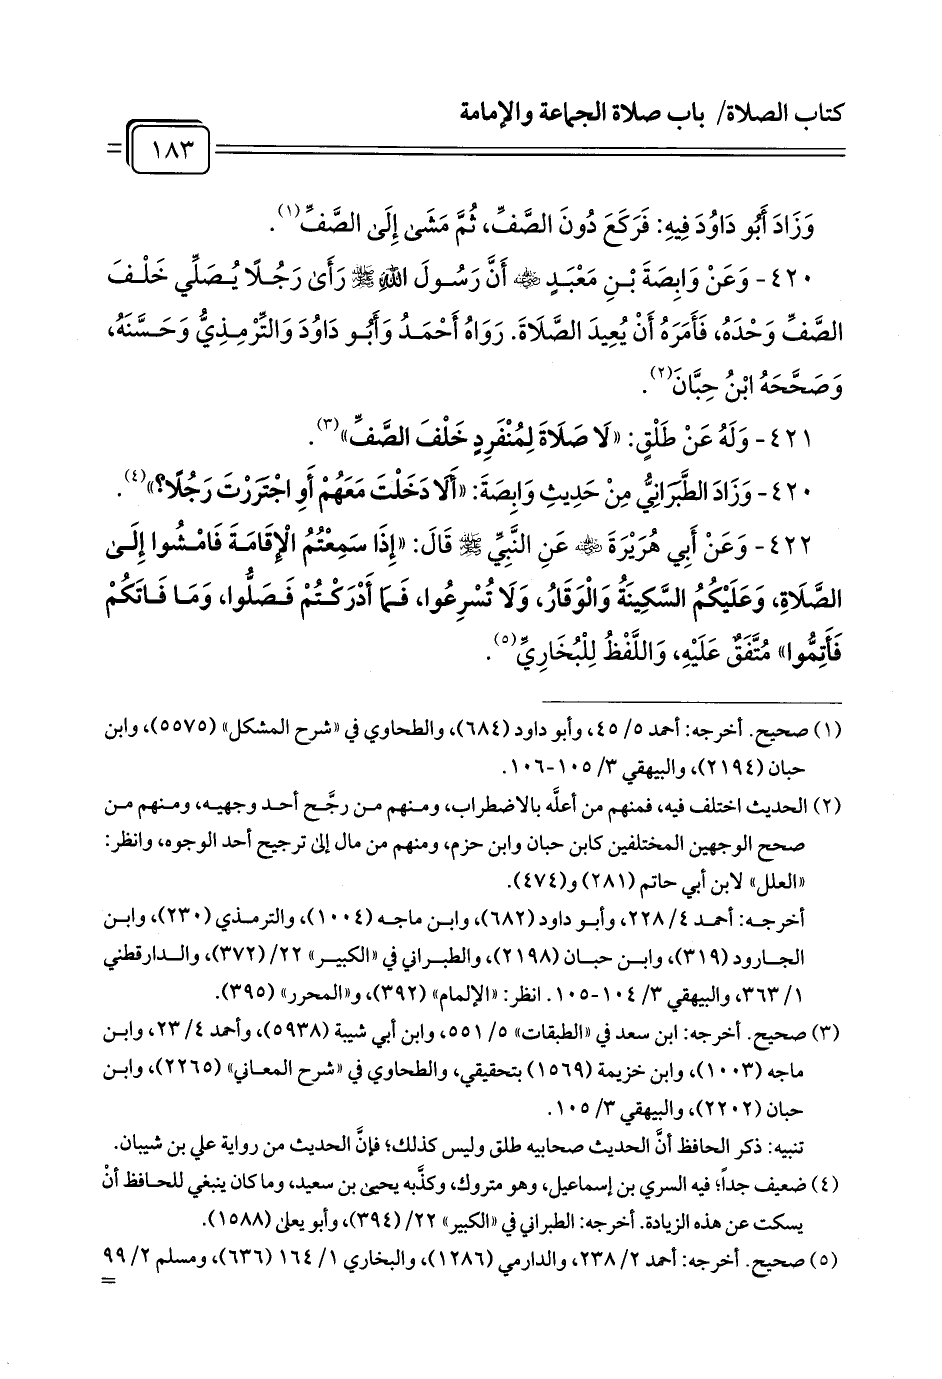 كتاب الصلاة/ باب صلاة الجماعة والإمامة
= ١٨٣
وَزَادَ أَبُو دَاوُدَ فِيهِ: فَرَكَعَ دُونَ الصَّفِّ، ثُمَّ مَشَى إِلَى الصَّفِّ(١).
٤٢٠- وَعَنْ وَابِصَةَ بْنِ مَعْبَدٍ ﵁ أَنَّ رَسُولَ اللهِ ﷺ رَأَى رَجُلًا يُصَلِّي خَلْفَ
الصَّفِّ وَحْدَهُ، فَأَمَرَهُ أَنْ يُعِيدَ الصَّلَاةَ. رَوَاهُ أَحْمَدُ وَأَبُو دَاوُدَ وَالتِّرْمِذِيُّ وَحَسَّنَهُ،
وَصَحَّحَهُ ابْنُ حِبَّانَ(٢).
٤٢١- وَلَهُ عَنْ طَلْقٍ: «لَا صَلَاةَ لِمُنْفَرِدٍ خَلْفَ الصَّفِّ»(٣).
٤٢٠- وَزَادَ الطَّبَرَانِيُّ مِنْ حَدِيثِ وَابِصَةَ: «أَلَا دَخَلْتَ مَعَهُمْ أَوِ اجْتَرَرْتَ رَجُلًا؟»(٤).
٤٢٢- وَعَنْ أَبِي هُرَيْرَةَ ﵁ عَنِ النَّبِيِّ ﷺ قَالَ: «إِذَا سَمِعْتُمُ الْإِقَامَةَ فَامْشُوا إِلَى
الصَّلَاةِ، وَعَلَيْكُمُ السَّكِينَةُ وَالْوَقَارُ، وَلَا تُسْرِعُوا، فَمَا أَدْرَكْتُمْ فَصَلُّوا، وَمَا فَاتَكُمْ
فَأَتِمُّوا» مُتَّفَقٌ عَلَيْهِ، وَاللَّفْظُ لِلْبُخَارِيِّ(٥).
(١) صحيح. أخرجه: أحمد ٥/ ٤٥، وأبو داود (٦٨٤)، والطحاوي في «شرح المشكل» (٥٥٧٥)، وابن
حبان (٢١٩٤)، والبيهقي ٣/ ١٠٥-١٠٦.
(٢) الحديث اختلف فيه، فمنهم من أعلَّه بالاضطراب، ومنهم من رجَّح أحد وجهيه، ومنهم من
صحح الوجهين المختلفين كابن حبان وابن حزم، ومنهم من مال إلى ترجيح أحد الوجوه، وانظر:
«العلل» لابن أبي حاتم (٢٨١) و(٤٧٤).
أخرجه: أحمد ٤/ ٢٢٨، وأبو داود (٦٨٢)، وابن ماجه (١٠٠٤)، والترمذي (٢٣٠)، وابن
الجارود (٣١٩)، وابن حبان (٢١٩٨)، والطبراني في «الكبير» ٢٢/ (٣٧٢)، والدارقطني
١/ ٣٦٣، والبيهقي ٣/ ١٠٤-١٠٥. انظر: «الإلمام» (٣٩٢)، و«المحرر» (٣٩٥).
(٣) صحيح. أخرجه: ابن سعد في «الطبقات» ٥/ ٥٥١، وابن أبي شيبة (٥٩٣٨)، وأحمد ٤/ ٢٣، وابن
ماجه (١٠٠٣)، وابن خزيمة (١٥٦٩) بتحقيقي، والطحاوي في «شرح المعاني» (٢٢٦٥)، وابن
حبان (٢٢٠٢)، والبيهقي ٣/ ١٠٥.
تنبيه: ذكر الحافظ أنَّ الحديث صحابيه طلق وليس كذلك؛ فإنَّ الحديث من رواية علي بن شيبان.
(٤) ضعيف جداً؛ فيه السري بن إسماعيل، وهو متروك، وكذَّبه يحيى بن سعيد، وما كان ينبغي للحافظ أنْ
يسكت عن هذه الزيادة. أخرجه: الطبراني في «الكبير» ٢٢/ (٣٩٤)، وأبو يعلى (١٥٨٨).
(٥) صحيح. أخرجه: أحمد ٢/ ٢٣٨، والدارمي (١٢٨٦)، والبخاري ١/ ١٦٤ (٦٣٦)، ومسلم ٢/ ٩٩
=